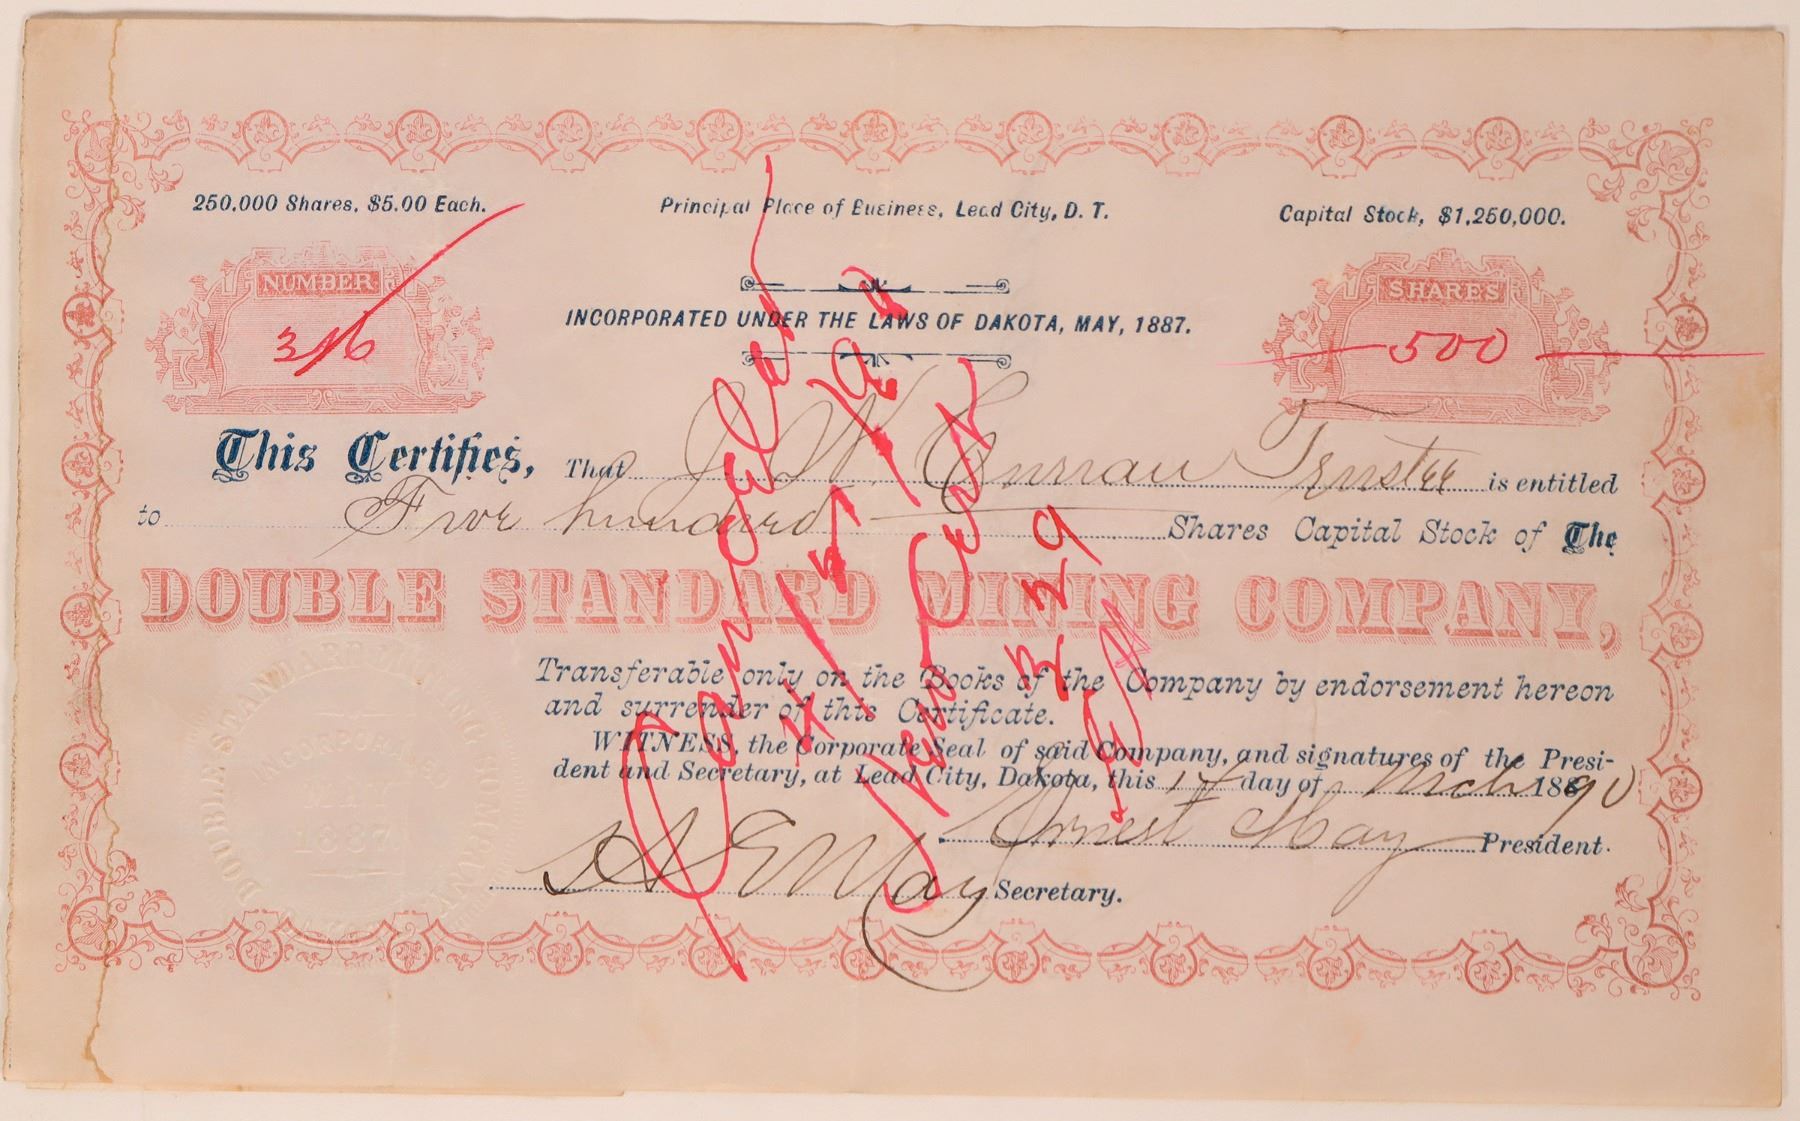 250,000 Shares, $5.00 Each.
Principal Place of Business, Lead City, D. T.
Capital Stock, $1,250,000.
NUMBER
316
SHARES
500
INCORPORATED UNDER THE LAWS OF DAKOTA, MAY, 1887.
This Certifies, That J. W. Curran Trustee is entitled
to Five hundred Shares Capital Stock of The
DOUBLE STANDARD MINING COMPANY,
Transferable only on the Books of the Company by endorsement hereon
and surrender of this Certificate.
WITNESS, the Corporate Seal of said Company, and signatures of the Presi-
dent and Secretary, at Lead City, Dakota, this 17 day of Mch 1890
Ernest May President.
May Secretary.
DOUBLE STANDARD MINING COMPANY
INCORPORATED
MAY
1887
Cancelled
New Cert
329